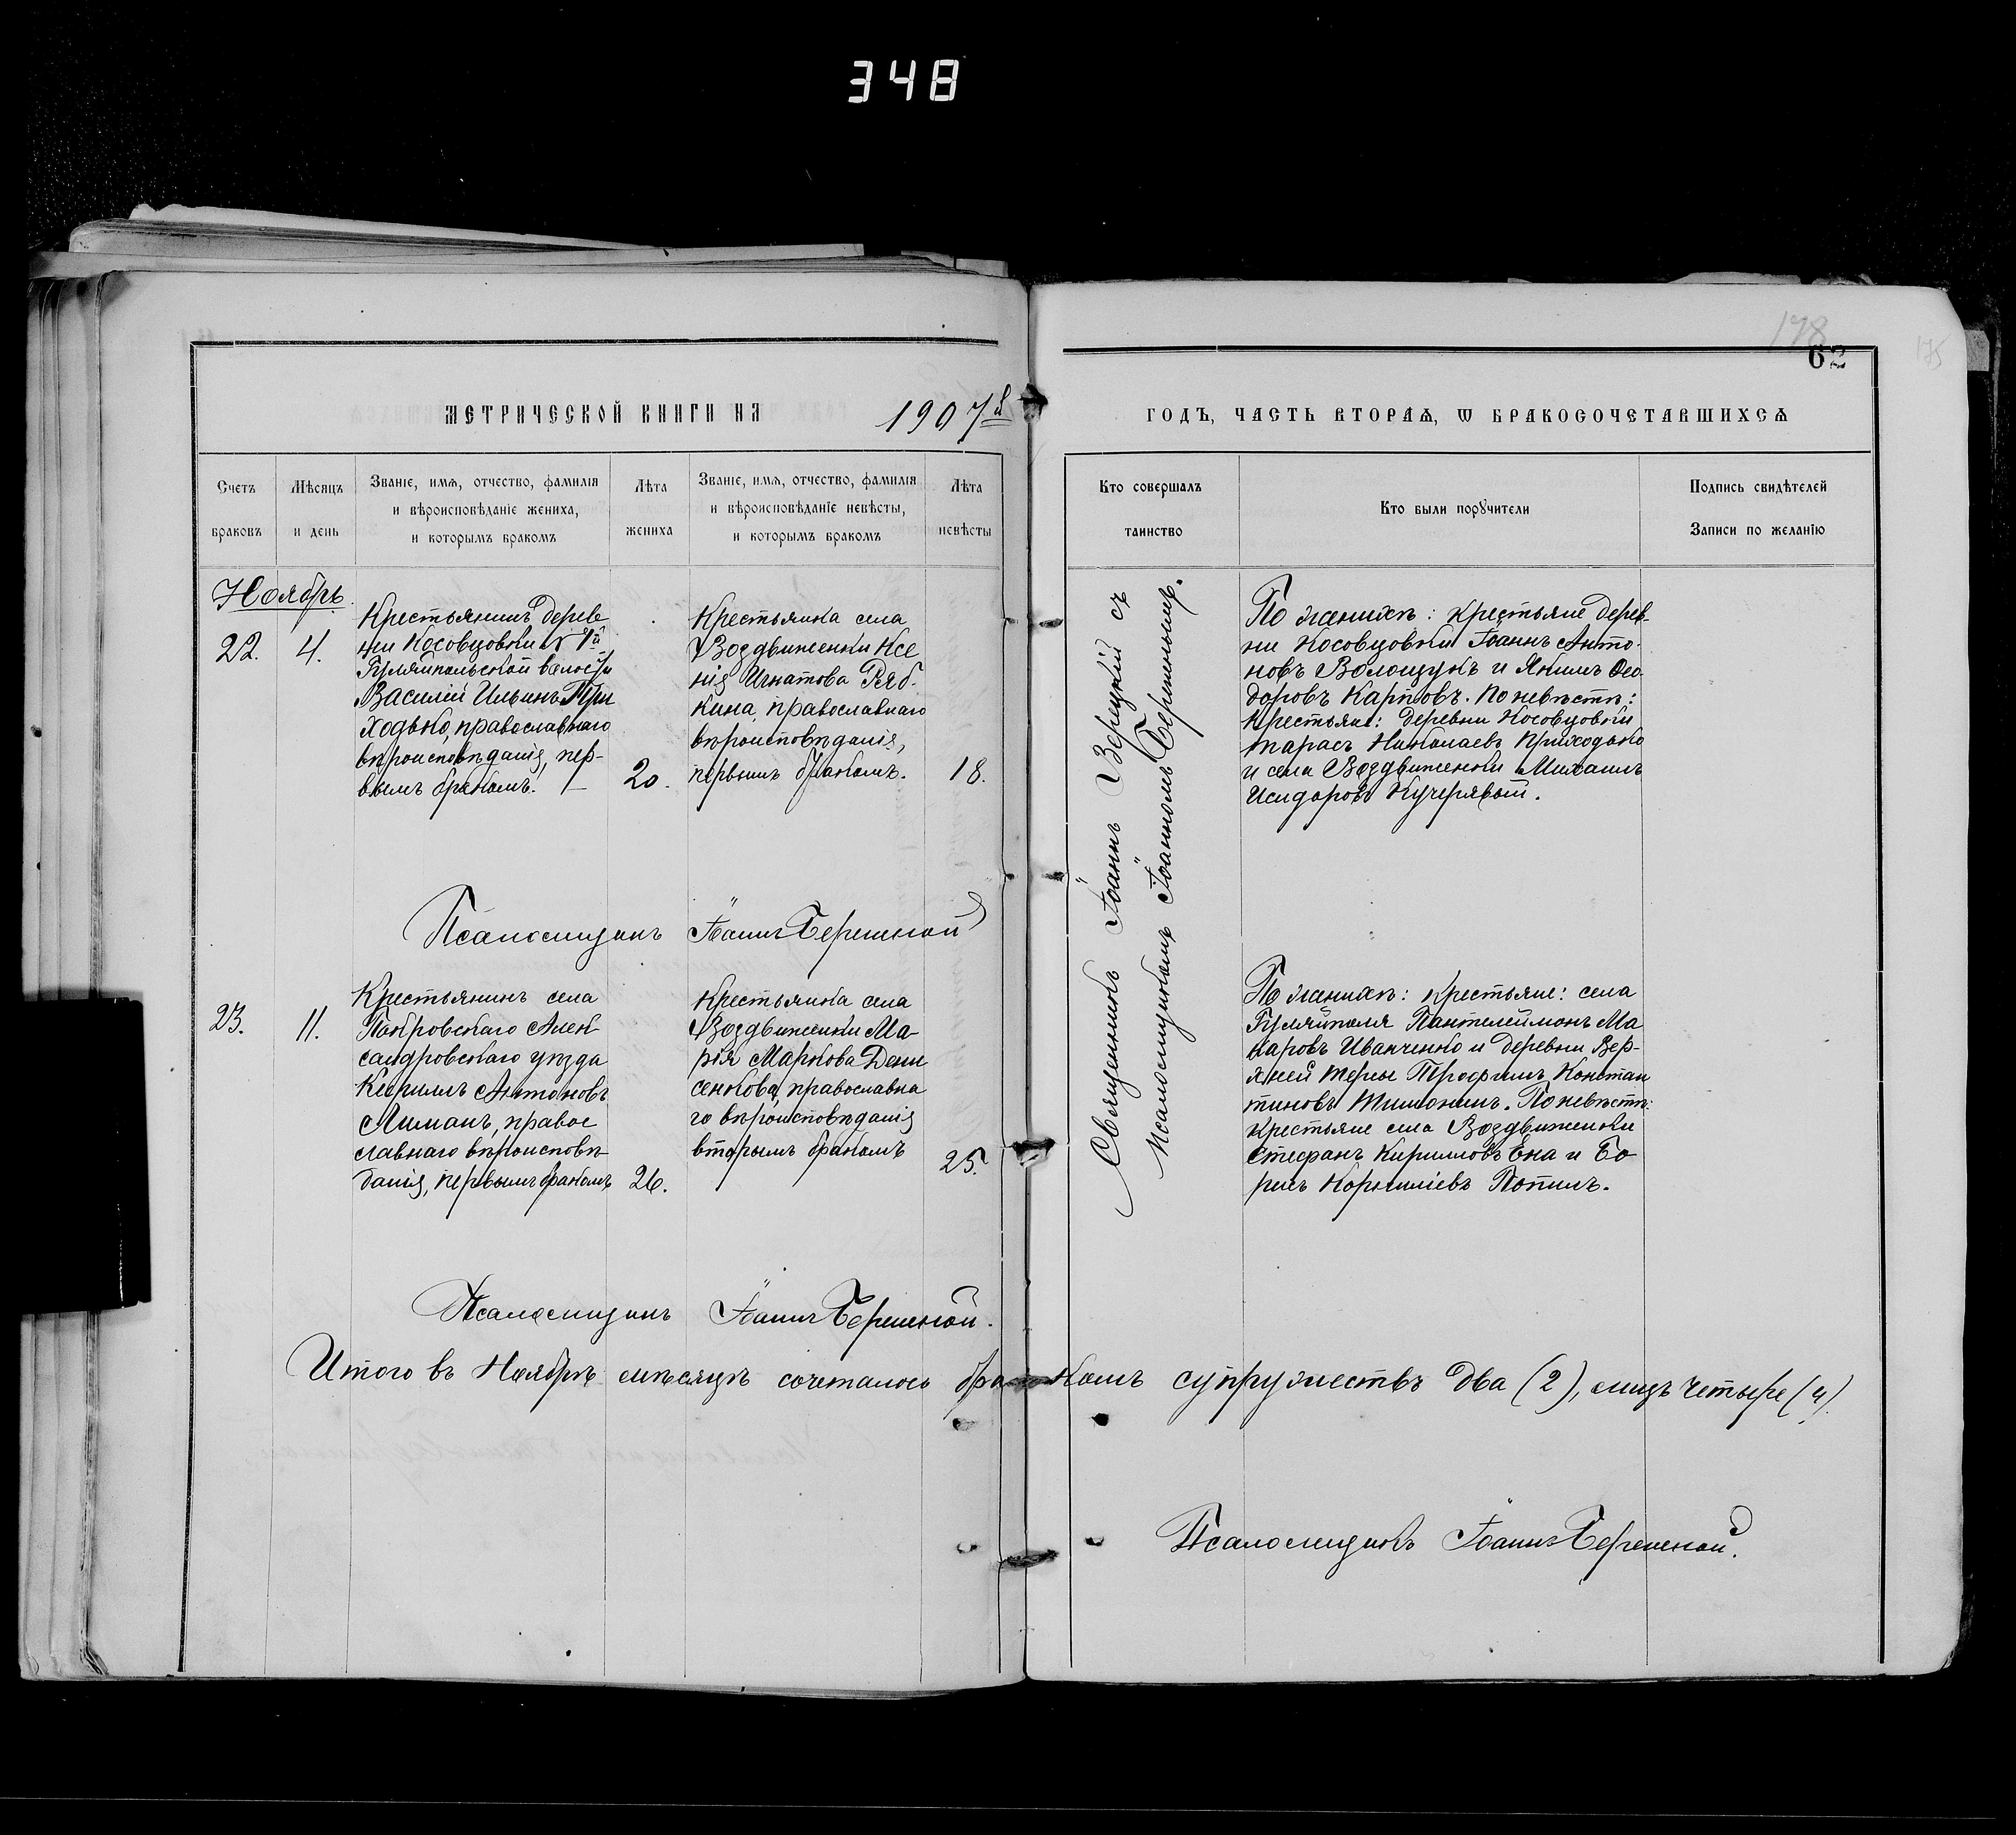 348
178
62
175
МЕТРИЧЕСКОЙ КНИГИ НА 1907й
ГОДЪ, ЧАСТЬ ВТОРАѦ, Ѡ БРАКОСОЧЕТАВШИХСѦ
Счетъ
браковъ
Мѣсяцъ
и день
Званіе, имѧ, отчество, фамиліѧ
и вѣроисповѣданіе жениха,
и которымъ бракомъ
Лѣта
жениха
Званіе, имѧ, отчество, фамиліѧ
и вѣроисповѣданіе невѣсты,
и которымъ бракомъ
Лѣта
невѣсты
Кто совершалъ
таинство
Кто были порꙋчители
Подпись свидѣтелей
Записи по желанію
Ноябрь.
22.
4.
Крестьянинъ дерев
ни Косовцовки
Гуляйпольской волости
Василій Ильинъ При
ходько, православнаго
вѣроисповѣданія, пер-
вымъ бракомъ.
20.
Крестьянка села
Воздвиженки Ксе
нія Игнатова Ряб
кина, православнаго
вѣроисповѣданія,
первымъ бракомъ.
18.
Священникъ Іоаннъ Верецкій съ
псаломщикомъ Іоанномъ Бережнымъ.
По женихѣ: крестьяне дерев-
ни Косовцовки Іоаннъ Анто-
новъ Волощукъ и Якимъ Ѳео-
доровъ Карповъ. По невѣстѣ:
крестьяне: деревни Косовцовки
Тарасъ Николаевъ Приходько
и села Воздвиженки Михаилъ
Исидоровъ Кучерявый.
Псаломщикъ Іоаннъ Бережной
23.
11.
Крестьянинъ села
Покровскаго Алек
сандровскаго уѣзда
Кирилъ Антоновъ
Лиманъ, правос
лавнаго вѣроисповѣ
данія, первымъ бракомъ
26.
Крестьянка села
Воздвиженки Ма-
рія Маркова Дени
сенкова, православна
го вѣроисповѣданія
вторымъ бракомъ
25.
По женихѣ: крестьяне: села
Гуляйполя Пантелеймонъ Ма
каровъ Иванченко и деревни Вер-
хней Терсы Трофимъ Констан
тиновъ Тимонинъ. По невѣстѣ:
крестьяне села Воздвиженки
Стефанъ Кирилловъ Ена и Бо
рисъ Корниліевъ Попилъ.
Псаломщикъ Іоаннъ Бережной.
Итого въ Ноябрѣ мѣсяцѣ сочеталось бракомъ супружествъ два (2), лицъ четыре (4).
Псаломщикъ Іоаннъ Бережной.